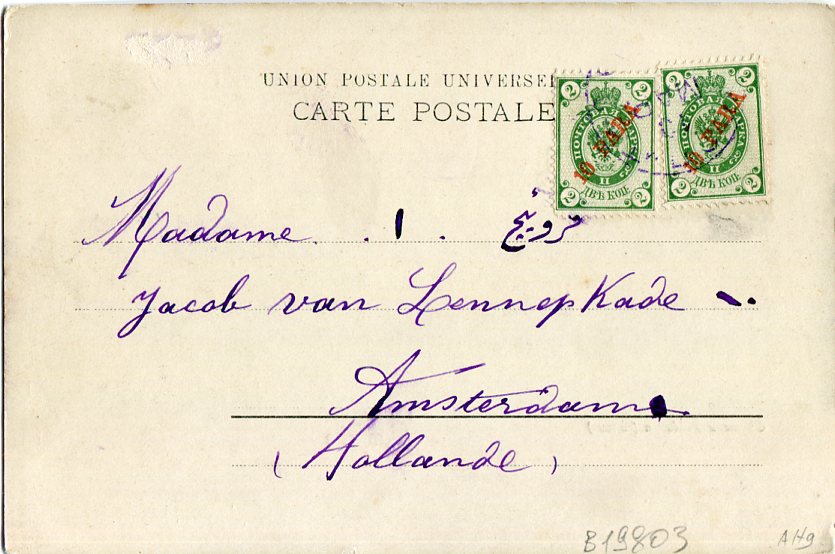 UNION POSTALE UNIVERSEL
CARTE POSTALE
2 2
ПОЧТОВАЯ МАРКА
10 PARA
II
2 ДВѢ КОП. 2
2 2
ПОЧТОВАЯ МАРКА
10 PARA
II
2 ДВѢ КОП. 2
Madame
Jacob van Lennep Kade
Amsterdam
(Hollande)
B19803
A Hg